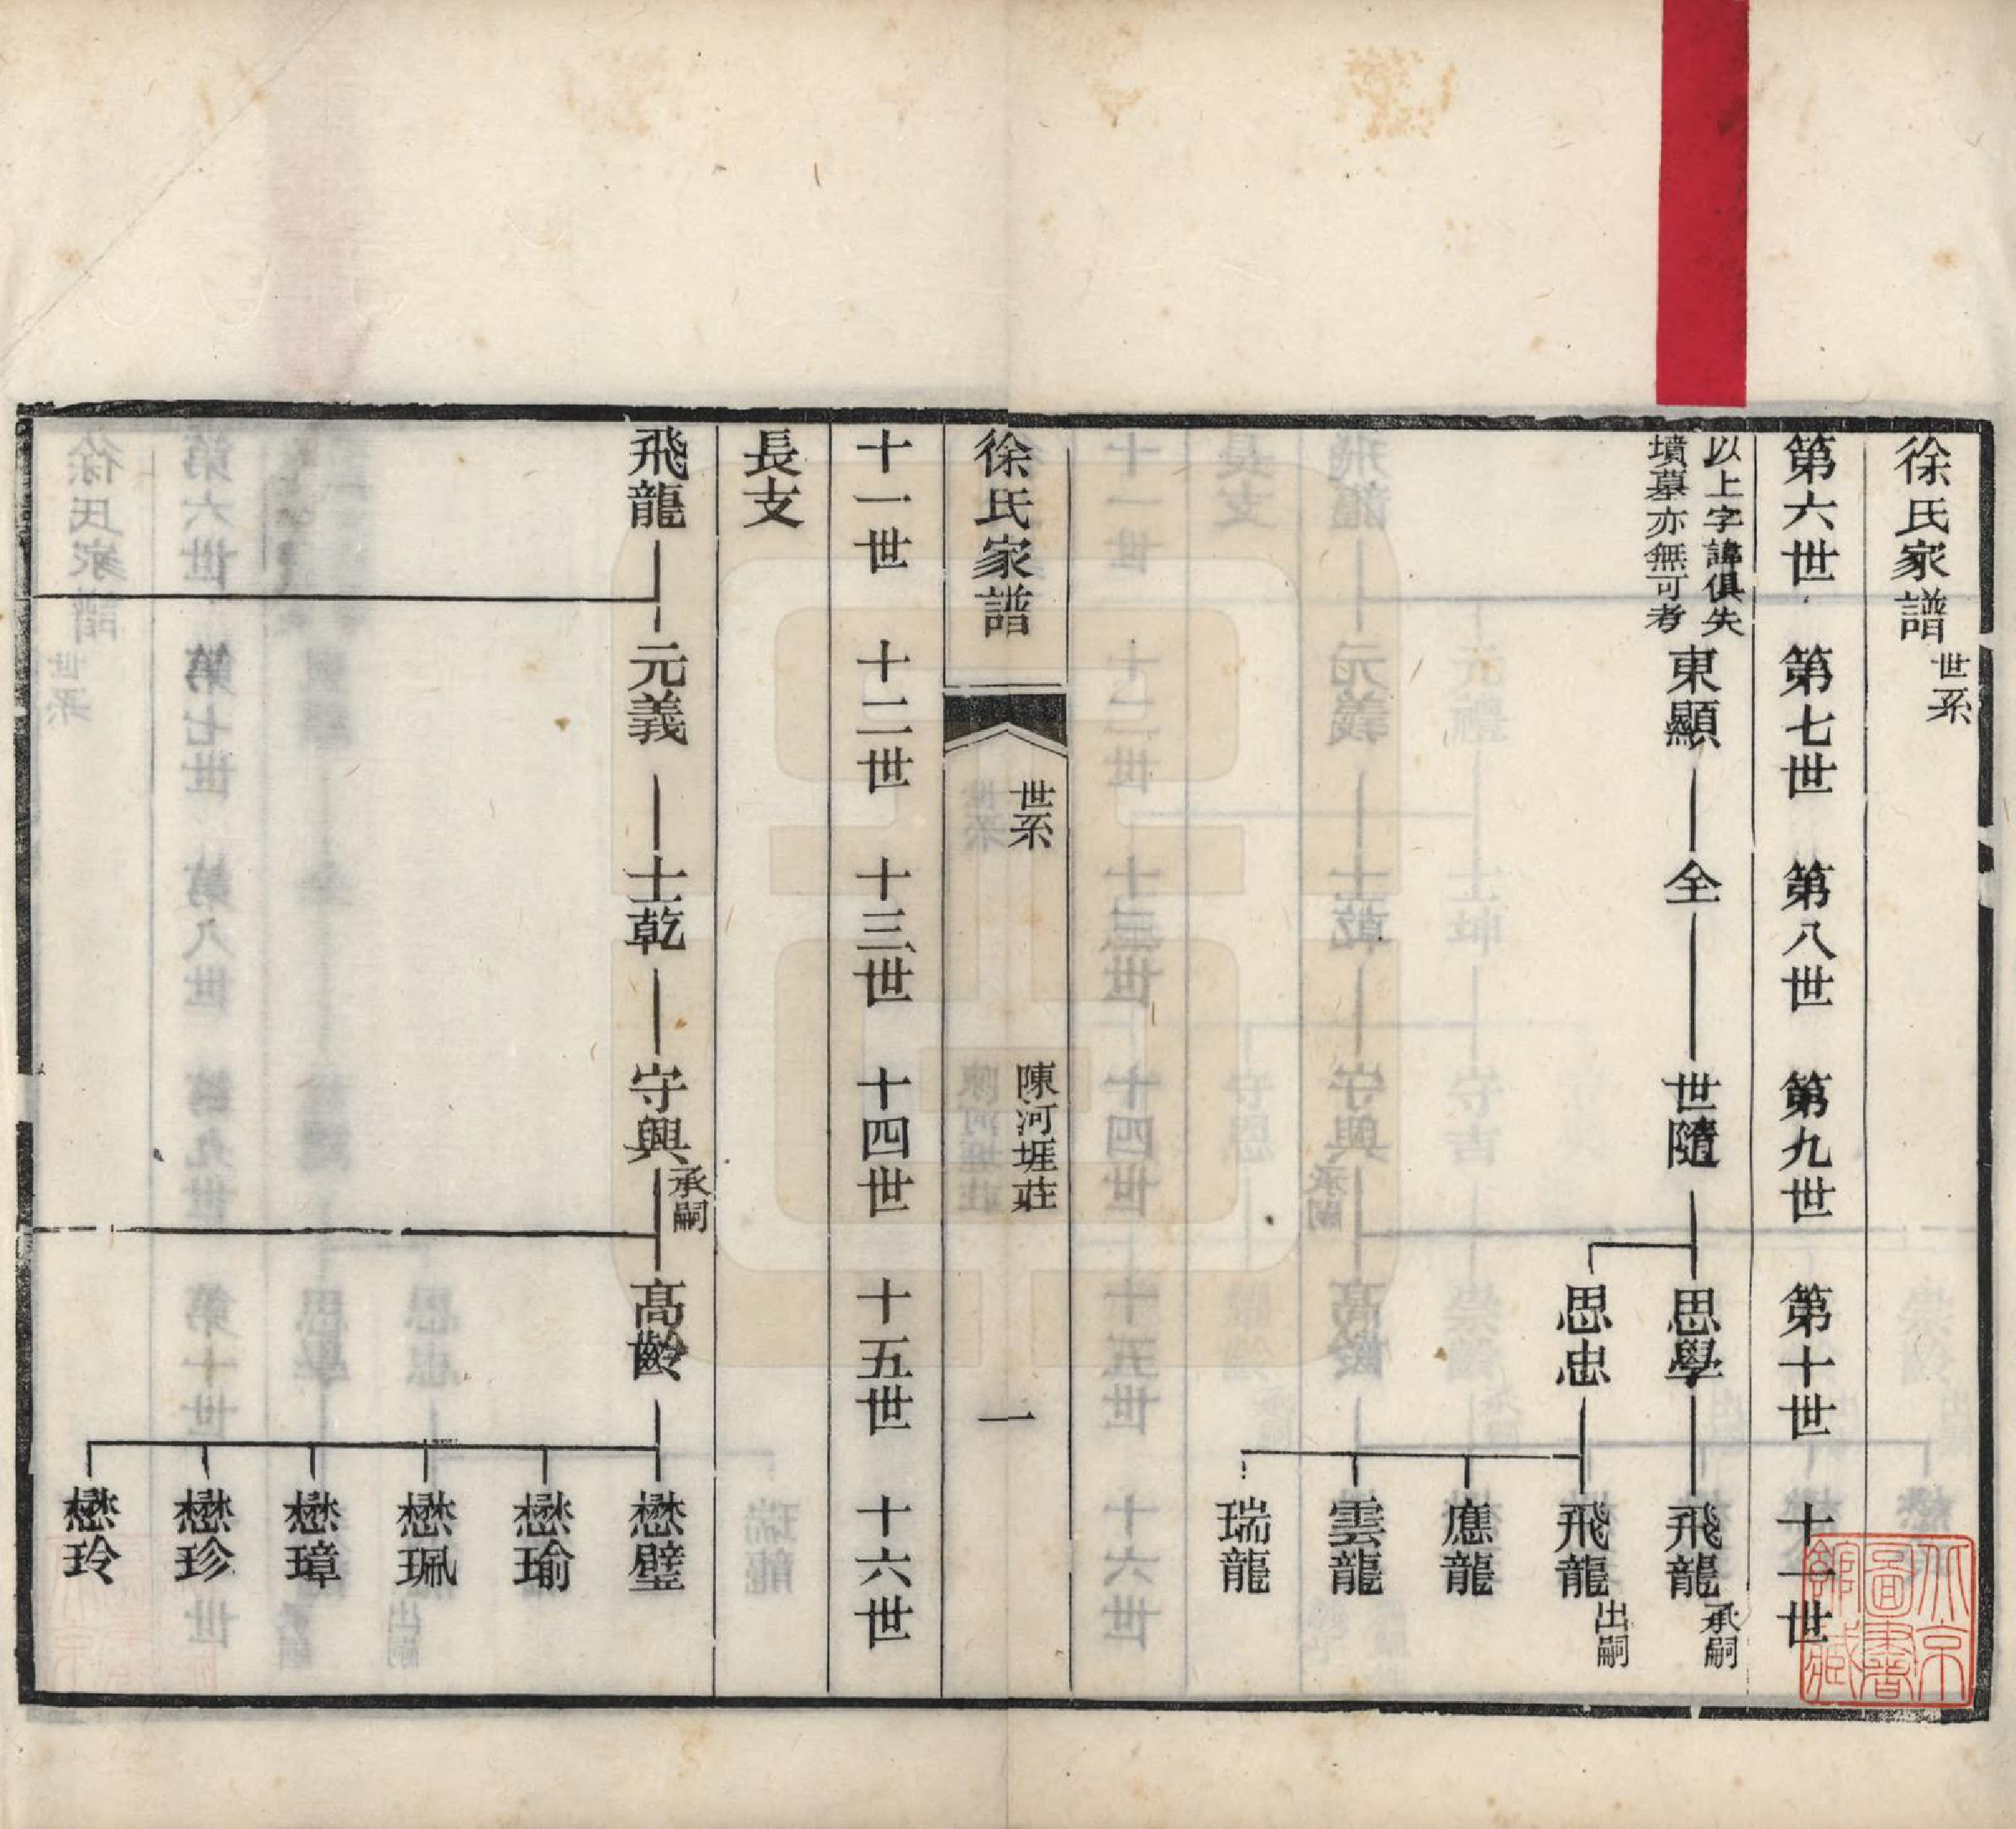 徐氏家譜 世系
第六世 第七世 第八世 第九世 第十世 十一世
以上字諱俱失
墳墓亦無可考
東顯 全 世隨 思學 飛龍 承嗣
思忠 飛龍 出嗣
應龍
雲龍
瑞龍
徐氏家譜 世系 陳河堐莊 一
十一世 十二世 十三世 十四世 十五世 十六世
長支
飛龍 元義 士乾 守興 承嗣 高齡 懋璧
懋瑜
懋珮
懋璋
懋珍
懋玲
北京
圖書
館藏